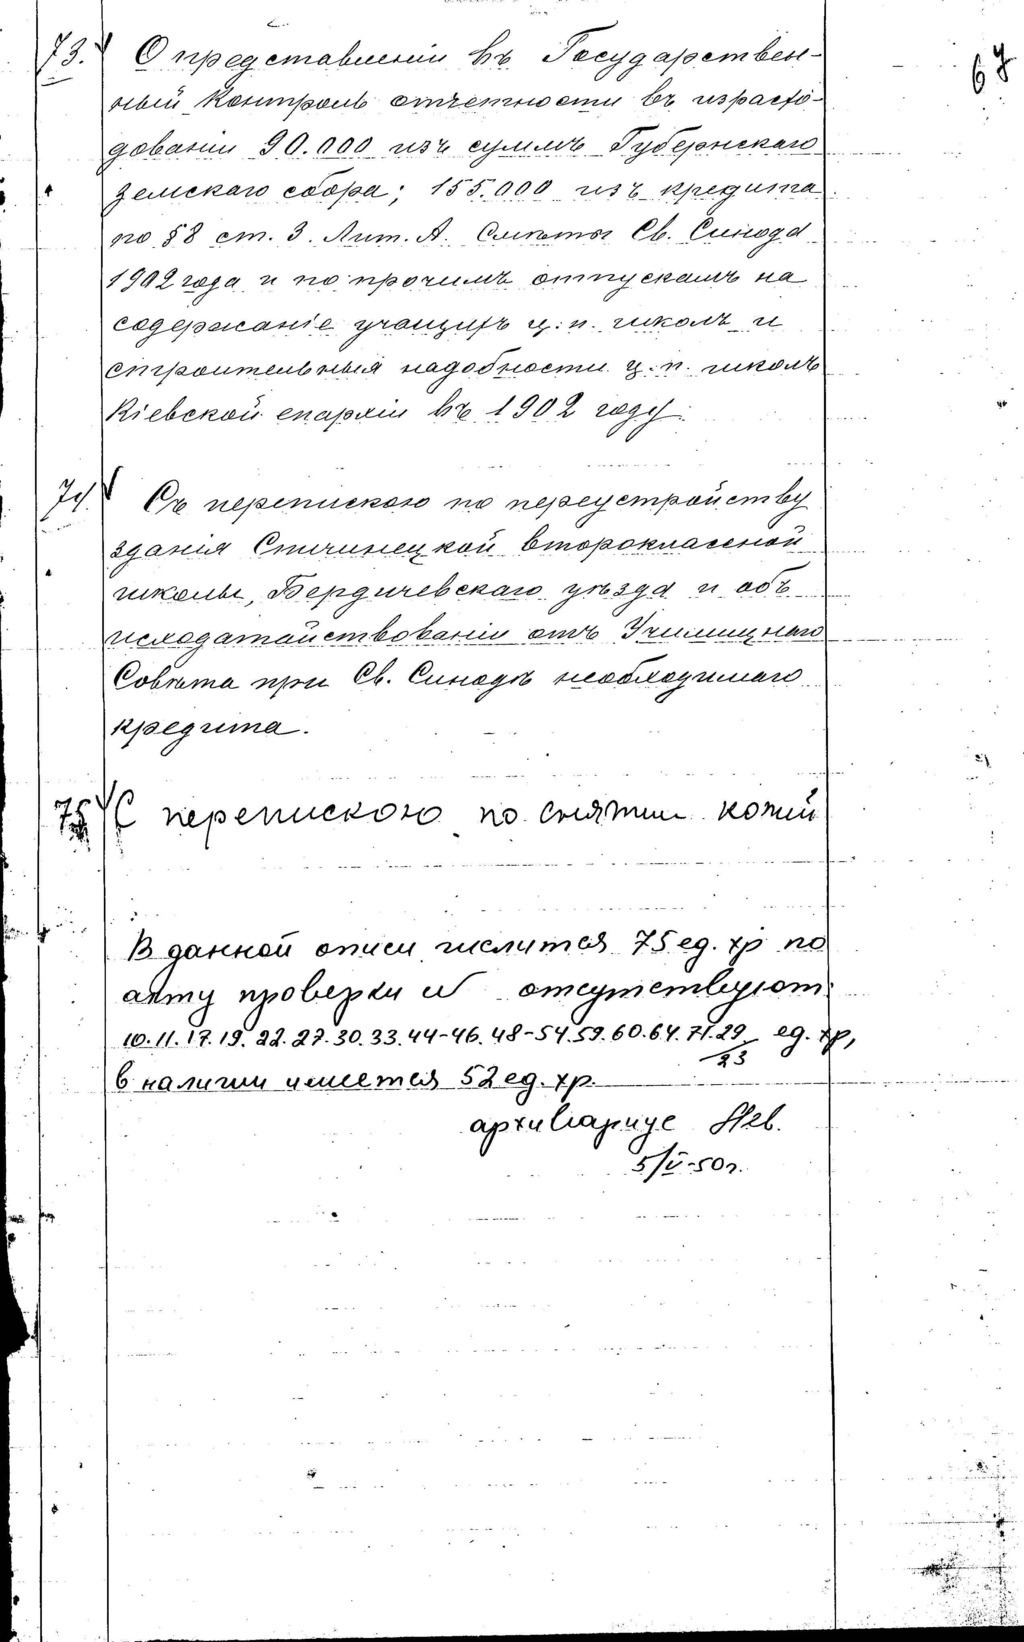 67
73. О представленіи въ Государствен-
ный Контроль отчетности въ израсхо-
дованіи 90.000 изъ суммъ Губернскаго
земскаго сбора; 155.000 изъ кредита
по §8 ст. 3. Лит. А. Сметы Св. Синода
1902 года и по прочимъ отпускамъ на
содержаніе учащихъ ц. п. школъ и
строительныя надобности ц. п. школъ
Кіевской епархіи въ 1902 году.
74. Съ перепискою по переустройству
зданія Спичинецкой второклассной
школы, Бердичевскаго уѣзда и объ
исходатайствованіи отъ Училищнаго
Совѣта при Св. Синодѣ необходимаго
кредита.
75 С перепискою по снятии копий
В данной описи числится 75 ед. хр по
акту проверки и отсутствуют
10. 11. 17. 19. 22. 27. 30. 33. 44-46. 48-54. 59. 60. 64. 71. 29 ед. хр,
23
в наличии имеется 52 ед. хр.
архивариус
5/V-50г.